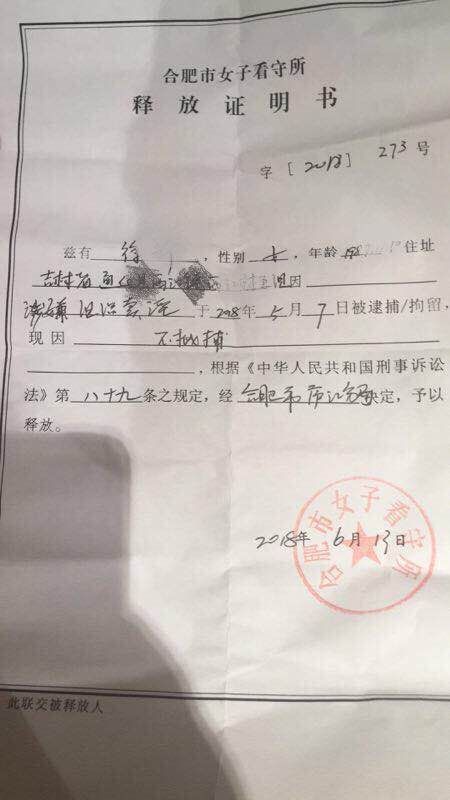 合肥市女子看守所
释放证明书
字[2018] 273号
兹有 徐 ，性别 女，年龄 住址
吉林省 因
涉嫌 卖淫 于2018年5月7日被逮捕/拘留，
现因 不批捕
，根据《中华人民共和国刑事诉讼
法》第八十九条之规定，经 合肥市 决定，予以
释放。
2018年6月13日
合肥市女子看守所
此联交被释放人